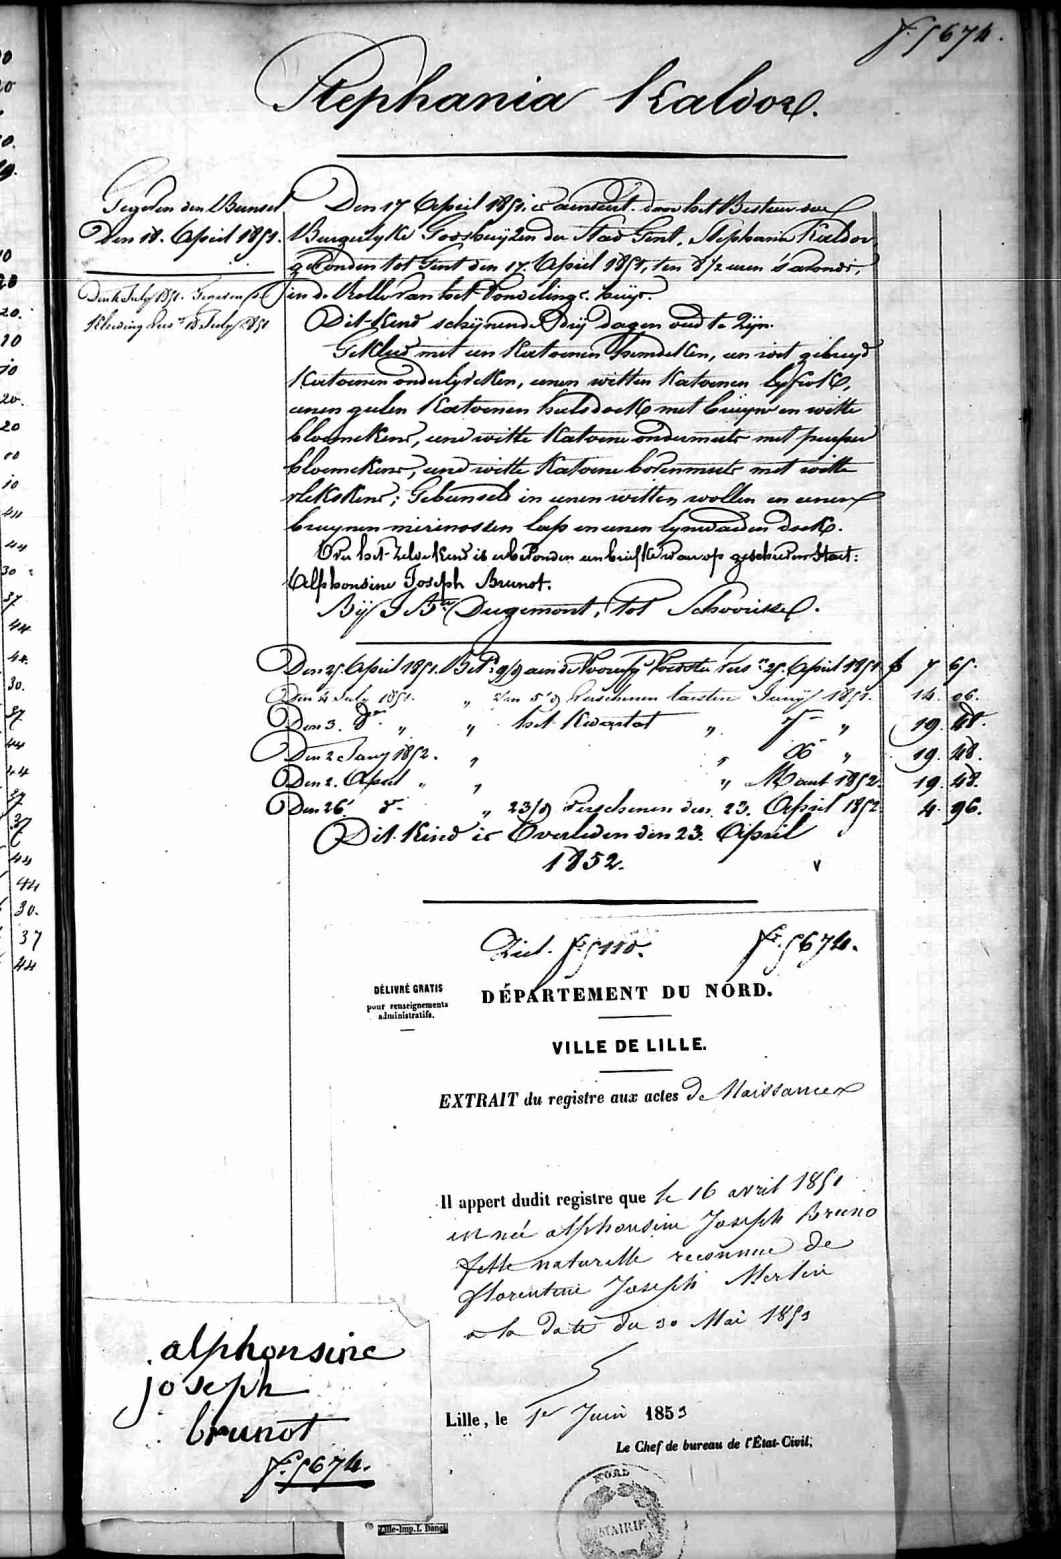 fo. 5674.
Stephania Kaldor.
Gegeven den Bunsel
Den 18. April 1851.
Den 4 July 1851.
Kleeding 18 July 1851
Den 17 April 1851, is aenveert door het Bestuer der
Burgerlyke Godshuijzen der Stad Gent, Stephania Kaldor
gevonden tot Gent den 17. April 1851, ten 8 1/2 uren 's avonds,
in de Rolle van het Vondelings huijs.
Dit Kind schijnende Drij dagen oud te Zijn.
Gekleed met een Katoenen hemdeken, een wit gebreyd
Katoenen onderlyveken, eenen witten Katoenen lyfrok,
eenen geelen Katoenen halsdoek met bruyn en witte
bloemekens, eene witte Katoene ondermuts met purper
bloemekens, eene witte Katoene bovenmuts met witte
vlekskens; Gebunseld in eenen witten wollen en eenen
bruynen merinossen lap en eenen lynwaeden doek.
Over het Zelve Kind is er bevonden een briefke waerop geschreven staet:
Alphonsine Joseph Brunot.
Bij J Bte Degemont, tot Schoorisse.
Den 25 April 1851. Bet. 9/9 aen de Voorste vers. 25 April 1851 f 7 65.
Den 4 July 1851. " verschenen laesten Junij 1851. 14. 06.
Den 3. 8er " " het Kwartal " 7er " 19. 48.
Den 2 Jany 1852. " " Xr " 19. 48.
Den 2. April " " " Maert 1852. 19. 48.
Den 26. do. " 23/9 Verschenen den 23. April 1852 4. 96.
Dit Kind is Overleden den 23. April
1852.
Ziet fo. 5110. fo. 5674.
DÉLIVRÉ GRATIS
pour renseignements
administratifs.
DÉPARTEMENT DU NORD.
VILLE DE LILLE.
EXTRAIT du registre aux actes de Naissance
Il appert dudit registre que le 16 avril 1851
est née alphonsine Joseph Bruno
fille naturelle reconnue de
florentine Joseph Merlin
a la date du 30 Mai 1853
Lille, le 1er Juin 1853
Le Chef de bureau de l'État-Civil,
NORD
MAIRIE
alphonsine
joseph
brunot
fo. 5674.
Lille-Imp. L. Danel